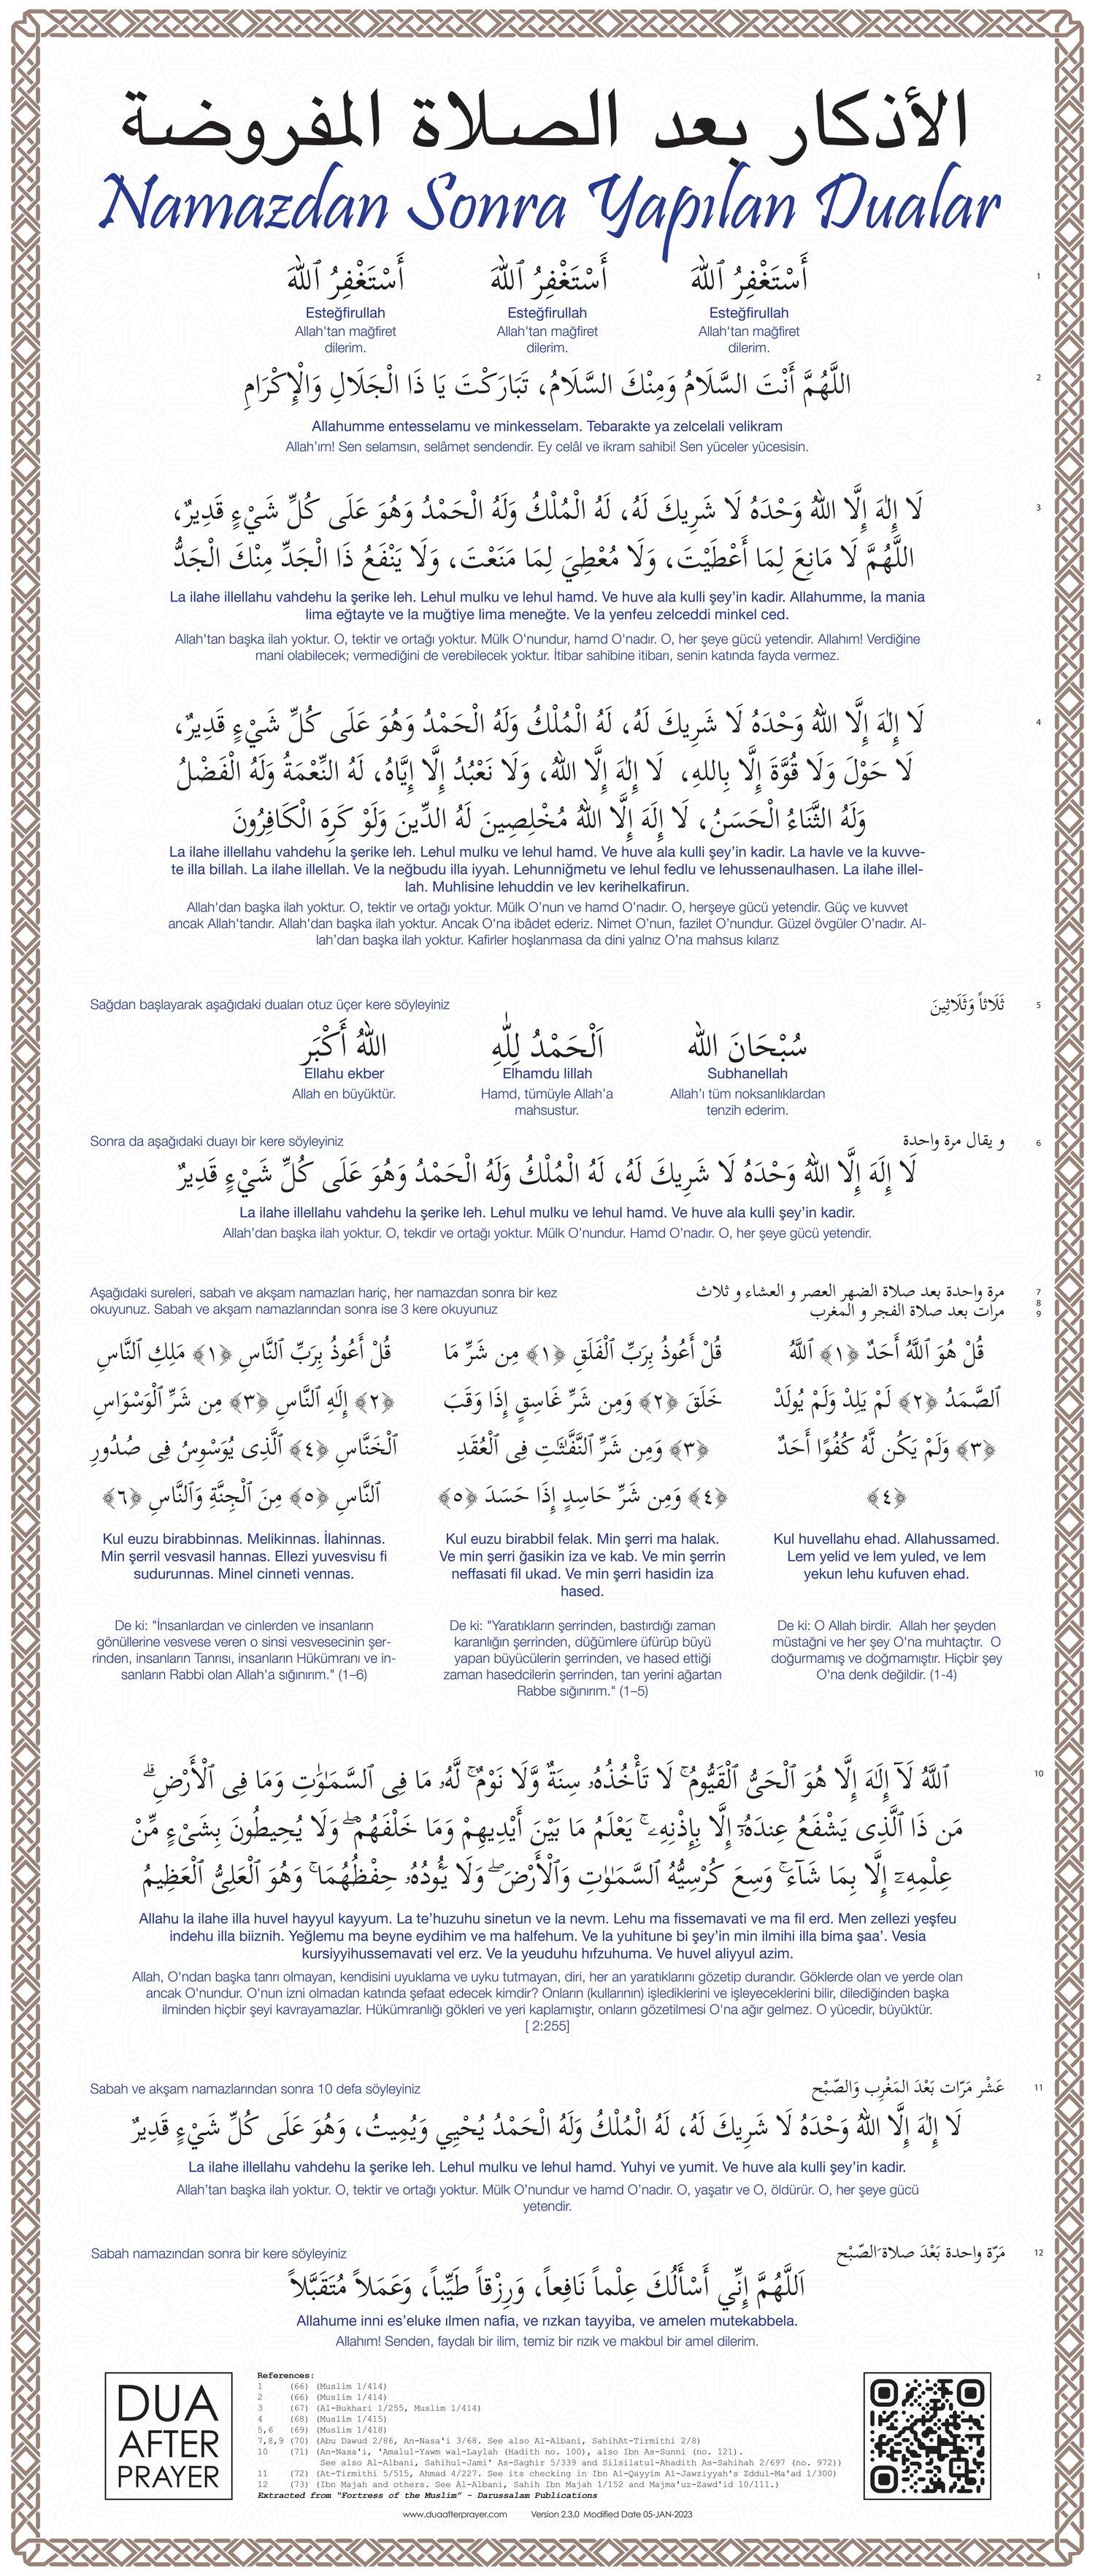 الأذكار بعد الصلاة المفروضة
Namazdan Sonra Yapılan Dualar
أَسْتَغْفِرُ ٱللهَ أَسْتَغْفِرُ ٱللهَ أَسْتَغْفِرُ ٱللهَ
1
Esteğfirullah Esteğfirullah Esteğfirullah
Allah'tan mağfiret Allah'tan mağfiret Allah'tan mağfiret
dilerim. dilerim. dilerim.
اللَّهُمَّ أَنْتَ السَّلَامُ وَمِنْكَ السَّلَامُ، تَبَارَكْتَ يَا ذَا الْجَلَالِ وَالْإِكْرَامِ
2
Allahumme entesselamu ve minkesselam. Tebarakte ya zelcelali velikram
Allah'ım! Sen selamsın, selâmet sendendir. Ey celâl ve ikram sahibi! Sen yüceler yücesisin.
لَا إِلٰهَ إِلَّا اللهُ وَحْدَهُ لَا شَرِيكَ لَهُ، لَهُ الْمُلْكُ وَلَهُ الْحَمْدُ وَهُوَ عَلَى كُلِّ شَيْءٍ قَدِيرٌ،
3
اللَّهُمَّ لَا مَانِعَ لِمَا أَعْطَيْتَ، وَلَا مُعْطِيَ لِمَا مَنَعْتَ، وَلَا يَنْفَعُ ذَا الْجَدِّ مِنْكَ الْجَدُّ
La ilahe illellahu vahdehu la şerike leh. Lehul mulku ve lehul hamd. Ve huve ala kulli şey'in kadir. Allahumme, la mania
lima eğtayte ve la muğtiye lima meneğte. Ve la yenfeu zelceddi minkel ced.
Allah'tan başka ilah yoktur. O, tektir ve ortağı yoktur. Mülk O'nundur, hamd O'nadır. O, her şeye gücü yetendir. Allahım! Verdiğine
mani olabilecek; vermediğini de verebilecek yoktur. İtibar sahibine itibarı, senin katında fayda vermez.
لَا إِلٰهَ إِلَّا اللهُ وَحْدَهُ لَا شَرِيكَ لَهُ، لَهُ الْمُلْكُ وَلَهُ الْحَمْدُ وَهُوَ عَلَى كُلِّ شَيْءٍ قَدِيرٌ،
4
لَا حَوْلَ وَلَا قُوَّةَ إِلَّا بِاللهِ، لَا إِلٰهَ إِلَّا اللهُ، وَلَا نَعْبُدُ إِلَّا إِيَّاهُ، لَهُ النِّعْمَةُ وَلَهُ الْفَضْلُ
وَلَهُ الثَّنَاءُ الْحَسَنُ، لَا إِلَهَ إِلَّا اللهُ مُخْلِصِينَ لَهُ الدِّينَ وَلَوْ كَرِهَ الْكَافِرُونَ
La ilahe illellahu vahdehu la şerike leh. Lehul mulku ve lehul hamd. Ve huve ala kulli şey'in kadir. La havle ve la kuvve-
te illa billah. La ilahe illellah. Ve la neğbudu illa iyyah. Lehunniğmetu ve lehul fedlu ve lehussenaulhasen. La ilahe illel-
lah. Muhlisine lehuddin ve lev kerihelkafirun.
Allah'dan başka ilah yoktur. O, tektir ve ortağı yoktur. Mülk O'nun ve hamd O'nadır. O, herşeye gücü yetendir. Güç ve kuvvet
ancak Allah'tandır. Allah'dan başka ilah yoktur. Ancak O'na ibâdet ederiz. Nimet O'nun, fazilet O'nundur. Güzel övgüler O'nadır. Al-
lah'dan başka ilah yoktur. Kafirler hoşlanmasa da dini yalnız O'na mahsus kılarız
Sağdan başlayarak aşağıdaki duaları otuz üçer kere söyleyiniz
ثَلَاثاً وَثَلَاثِينَ
5
سُبْحَانَ الله اَلْحَمْدُ لِلّٰهِ اللهُ أَكْبَر
Ellahu ekber Elhamdu lillah Subhanellah
Allah en büyüktür. Hamd, tümüyle Allah'a Allah'ı tüm noksanlıklardan
mahsustur. tenzih ederim.
Sonra da aşağıdaki duayı bir kere söyleyiniz
و يقال مرة واحدة
6
لَا إِلَهَ إِلَّا اللهُ وَحْدَهُ لَا شَرِيكَ لَهُ، لَهُ الْمُلْكُ وَلَهُ الْحَمْدُ وَهُوَ عَلَى كُلِّ شَيْءٍ قَدِيرٌ
La ilahe illellahu vahdehu la şerike leh. Lehul mulku ve lehul hamd. Ve huve ala kulli şey'in kadir.
Allah'dan başka ilah yoktur. O, tekdir ve ortağı yoktur. Mülk O'nundur. Hamd O'nadır. O, her şeye gücü yetendir.
Aşağıdaki sureleri, sabah ve akşam namazları hariç, her namazdan sonra bir kez
okuyunuz. Sabah ve akşam namazlarından sonra ise 3 kere okuyunuz
مرة واحدة بعد صلاة الضهر العصر و العشاء و ثلاث
مرات بعد صلاة الفجر و المغرب
7
8
9
قُلْ هُوَ ٱللَّهُ أَحَدٌ ﴿١﴾ ٱللَّهُ
ٱلصَّمَدُ ﴿٢﴾ لَمْ يَلِدْ وَلَمْ يُولَدْ
﴿٣﴾ وَلَمْ يَكُن لَّهُ كُفُوًا أَحَدٌ
﴿٤﴾
Kul huvellahu ehad. Allahussamed.
Lem yelid ve lem yuled, ve lem
yekun lehu kufuven ehad.
De ki: O Allah birdir. Allah her şeyden
müstağni ve her şey O'na muhtaçtır. O
doğurmamış ve doğmamıştır. Hiçbir şey
O'na denk değildir. (1-4)
قُلْ أَعُوذُ بِرَبِّ ٱلْفَلَقِ ﴿١﴾ مِن شَرِّ مَا
خَلَقَ ﴿٢﴾ وَمِن شَرِّ غَاسِقٍ إِذَا وَقَبَ
﴿٣﴾ وَمِن شَرِّ ٱلنَّفَّٰثَٰتِ فِى ٱلْعُقَدِ
﴿٤﴾ وَمِن شَرِّ حَاسِدٍ إِذَا حَسَدَ ﴿٥﴾
Kul euzu birabbil felak. Min şerri ma halak.
Ve min şerri ğasikin iza ve kab. Ve min şerrin
neffasati fil ukad. Ve min şerri hasidin iza
hased.
De ki: "Yaratıkların şerrinden, bastırdığı zaman
karanlığın şerrinden, düğümlere üfürüp büyü
yapan büyücülerin şerrinden, ve hased ettiği
zaman hasedcilerin şerrinden, tan yerini ağartan
Rabbe sığınırım." (1–5)
قُلْ أَعُوذُ بِرَبِّ ٱلنَّاسِ ﴿١﴾ مَلِكِ ٱلنَّاسِ
﴿٢﴾ إِلَٰهِ ٱلنَّاسِ ﴿٣﴾ مِن شَرِّ ٱلْوَسْوَاسِ
ٱلْخَنَّاسِ ﴿٤﴾ ٱلَّذِى يُوَسْوِسُ فِى صُدُورِ
ٱلنَّاسِ ﴿٥﴾ مِنَ ٱلْجِنَّةِ وَٱلنَّاسِ ﴿٦﴾
Kul euzu birabbinnas. Melikinnas. İlahinnas.
Min şerril vesvasil hannas. Ellezi yuvesvisu fi
sudurunnas. Minel cinneti vennas.
De ki: "İnsanlardan ve cinlerden ve insanların
gönüllerine vesvese veren o sinsi vesvesecinin şer-
rinden, insanların Tanrısı, insanların Hükümranı ve in-
sanların Rabbi olan Allah'a sığınırım." (1–6)
ٱللَّهُ لَآ إِلَٰهَ إِلَّا هُوَ ٱلْحَىُّ ٱلْقَيُّومُ ۚ لَا تَأْخُذُهُۥ سِنَةٌ وَلَا نَوْمٌ ۚ لَّهُۥ مَا فِى ٱلسَّمَٰوَٰتِ وَمَا فِى ٱلْأَرْضِ ۗ
10
مَن ذَا ٱلَّذِى يَشْفَعُ عِندَهُۥٓ إِلَّا بِإِذْنِهِۦ ۚ يَعْلَمُ مَا بَيْنَ أَيْدِيهِمْ وَمَا خَلْفَهُمْ ۖ وَلَا يُحِيطُونَ بِشَىْءٍ مِّنْ
عِلْمِهِۦٓ إِلَّا بِمَا شَآءَ ۚ وَسِعَ كُرْسِيُّهُ ٱلسَّمَٰوَٰتِ وَٱلْأَرْضَ ۖ وَلَا يَـُٔودُهُۥ حِفْظُهُمَا ۚ وَهُوَ ٱلْعَلِىُّ ٱلْعَظِيمُ
Allahu la ilahe illa huvel hayyul kayyum. La te'huzuhu sinetun ve la nevm. Lehu ma fissemavati ve ma fil erd. Men zellezi yeşfeu
indehu illa biiznih. Yeğlemu ma beyne eydihim ve ma halfehum. Ve la yuhitune bi şey'in min ilmihi illa bima şaa'. Vesia
kursiyyihussemavati vel erz. Ve la yeuduhu hıfzuhuma. Ve huvel aliyyul azim.
Allah, O'ndan başka tanrı olmayan, kendisini uyuklama ve uyku tutmayan, diri, her an yaratıklarını gözetip durandır. Göklerde olan ve yerde olan
ancak O'nundur. O'nun izni olmadan katında şefaat edecek kimdir? Onların (kullarının) işlediklerini ve işleyeceklerini bilir, dilediğinden başka
ilminden hiçbir şeyi kavrayamazlar. Hükümranlığı gökleri ve yeri kaplamıştır, onların gözetilmesi O'na ağır gelmez. O yücedir, büyüktür.
[ 2:255]
Sabah ve akşam namazlarından sonra 10 defa söyleyiniz
عَشْر مَرّات بَعْدَ المَغْرِب وَالصّبْح
11
لَا إِلٰهَ إِلَّا اللهُ وَحْدَهُ لَا شَرِيكَ لَهُ، لَهُ الْمُلْكُ وَلَهُ الْحَمْدُ يُحْيِي وَيُمِيتُ، وَهُوَ عَلَى كُلِّ شَيْءٍ قَدِيرٌ
La ilahe illellahu vahdehu la şerike leh. Lehul mulku ve lehul hamd. Yuhyi ve yumit. Ve huve ala kulli şey'in kadir.
Allah'tan başka ilah yoktur. O, tektir ve ortağı yoktur. Mülk O'nundur ve hamd O'nadır. O, yaşatır ve O, öldürür. O, her şeye gücü
yetendir.
Sabah namazından sonra bir kere söyleyiniz
مَرّة واحدة بَعْدَ صلاة َالصّبْح
12
اَللَّهُمَّ إِنِّي أَسْأَلُكَ عِلْماً نَافِعاً، وَرِزْقاً طَيِّباً، وَعَمَلاً مُتَقَبَّلاً
Allahume inni es'eluke ılmen nafia, ve rızkan tayyiba, ve amelen mutekabbela.
Allahım! Senden, faydalı bir ilim, temiz bir rızık ve makbul bir amel dilerim.
DUA
AFTER
PRAYER
References:
1 (66) (Muslim 1/414)
2 (66) (Muslim 1/414)
3 (67) (Al-Bukhari 1/255, Muslim 1/414)
4 (68) (Muslim 1/415)
5,6 (69) (Muslim 1/418)
7,8,9 (70) (Abu Dawud 2/86, An-Nasa'i 3/68. See also Al-Albani, SahihAt-Tirmithi 2/8)
10 (71) (An-Nasa'i, 'Amalul-Yawm wal-Laylah (Hadith no. 100), also Ibn As-Sunni (no. 121).
See also Al-Albani, Sahihul-Jami' As-Saghir 5/339 and Silsilatul-Ahadith As-Sahihah 2/697 (no. 972))
11 (72) (At-Tirmithi 5/515, Ahmad 4/227. See its checking in Ibn Al-Qayyim Al-Jawziyyah's Zddul-Ma'ad 1/300)
12 (73) (Ibn Majah and others. See Al-Albani, Sahih Ibn Majah 1/152 and Majma'uz-Zawd'id 10/111.)
Extracted from "Fortress of the Muslim" - Darussalam Publications
www.duaafterprayer.com Version 2.3.0 Modified Date 05-JAN-2023